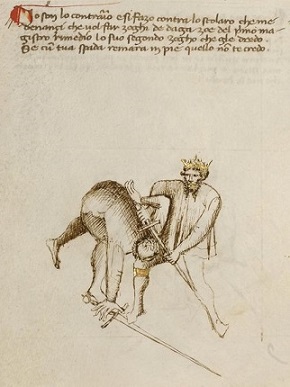 Io son lo contrario e si fazo contra lo scolaro che me
denanzi che vol far zoghi de daga zoe del primo ma-
gistro rimedio lo suo segondo zogho che gle dredo.
Se cum tua spada remarà in pie quello no te credo.